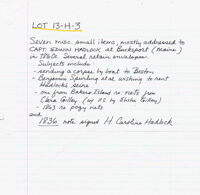 LOT 13-H-3
Seven misc. small items, mostly addressed to
CAPT. EDWIN HADLOCK at Bucksport (Maine)
in 1860s. Several retain envelopes.
Subjects include
- sending a corpse by boat to Boston
- Benjamin Spurling et al wishing to rent
Hadlock's seine
- one from Bakers Island re: nets from
Gilley (w/ P.S. by Elisha Gilley)
- 1863 re pogy nets
and
1836 note signed H. Caroline Hadlock